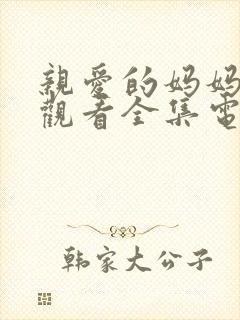 親愛的妈妈
觀看全集電
韩家大公子